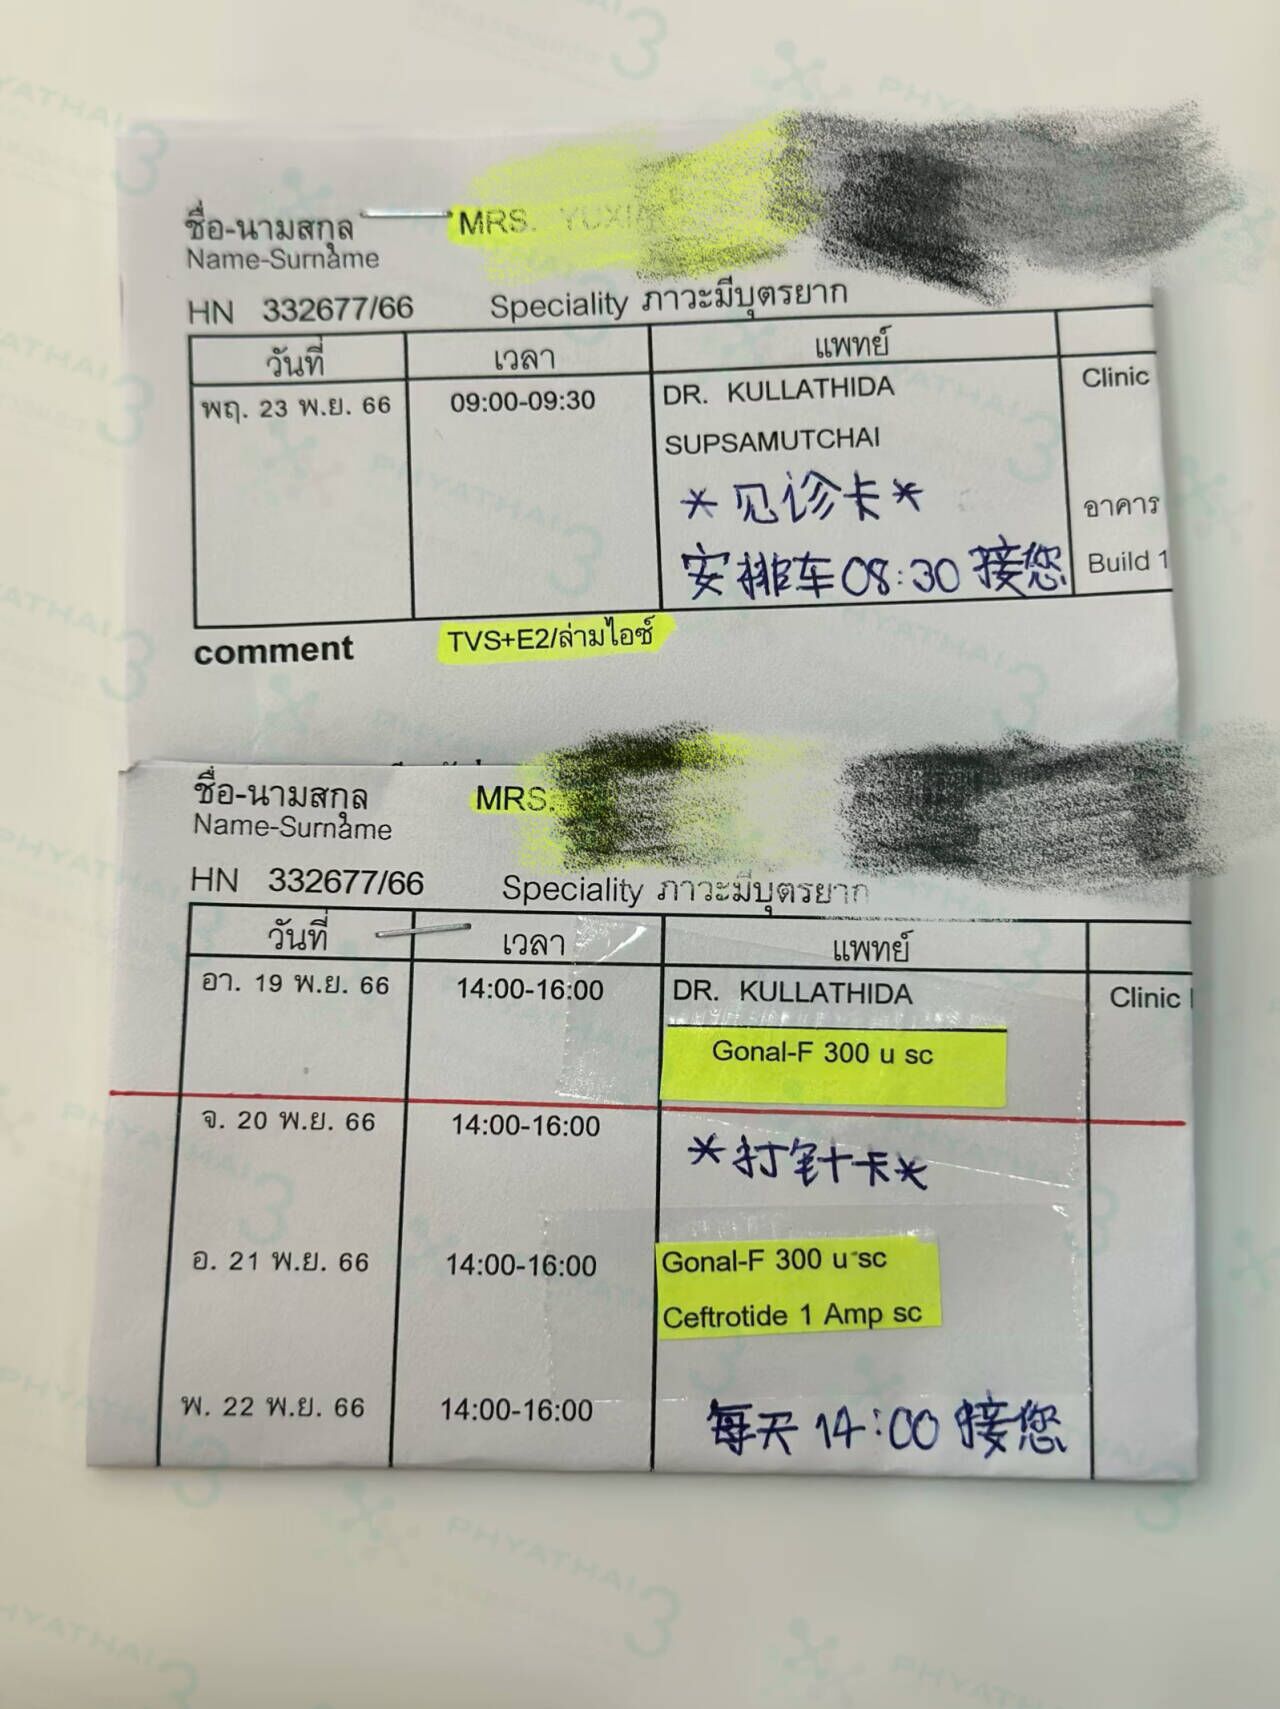 ชื่อ-นามสกุล MRS.
Name-Surname
HN 332677/66 Speciality ภาวะมีบุตรยาก
วันที่ เวลา แพทย์
พฤ. 23 พ.ย. 66 09:00-09:30 DR. KULLATHIDA Clinic
SUPSAMUTCHAI
*见诊卡* อาคาร
安排车08:30接您 Build 1
comment TVS+E2/ล่ามไอซ์
ชื่อ-นามสกุล MRS.
Name-Surname
HN 332677/66 Speciality ภาวะมีบุตรยาก
วันที่ เวลา แพทย์
อา. 19 พ.ย. 66 14:00-16:00 DR. KULLATHIDA Clinic
Gonal-F 300 u sc
จ. 20 พ.ย. 66 14:00-16:00
*打针卡*
อ. 21 พ.ย. 66 14:00-16:00 Gonal-F 300 u sc
Ceftrotide 1 Amp sc
พ. 22 พ.ย. 66 14:00-16:00 每天14:00接您
PHYATHAI 3